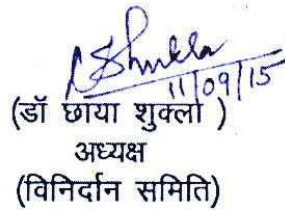 Shukla
11/09/15
(डॉ छाया शुक्ला )
अध्यक्ष
(विनिर्दान समिति)